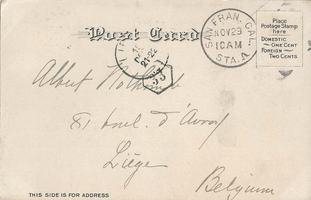 Post Card
SAN FRAN. CAL.
NOV 23
10 AM
STA. A
Place
Postage Stamp
here
DOMESTIC
ONE CENT
FOREIGN
TWO CENTS
21-22
Albert
81 d'Avroy
Liège
Belgium
THIS SIDE IS FOR ADDRESS